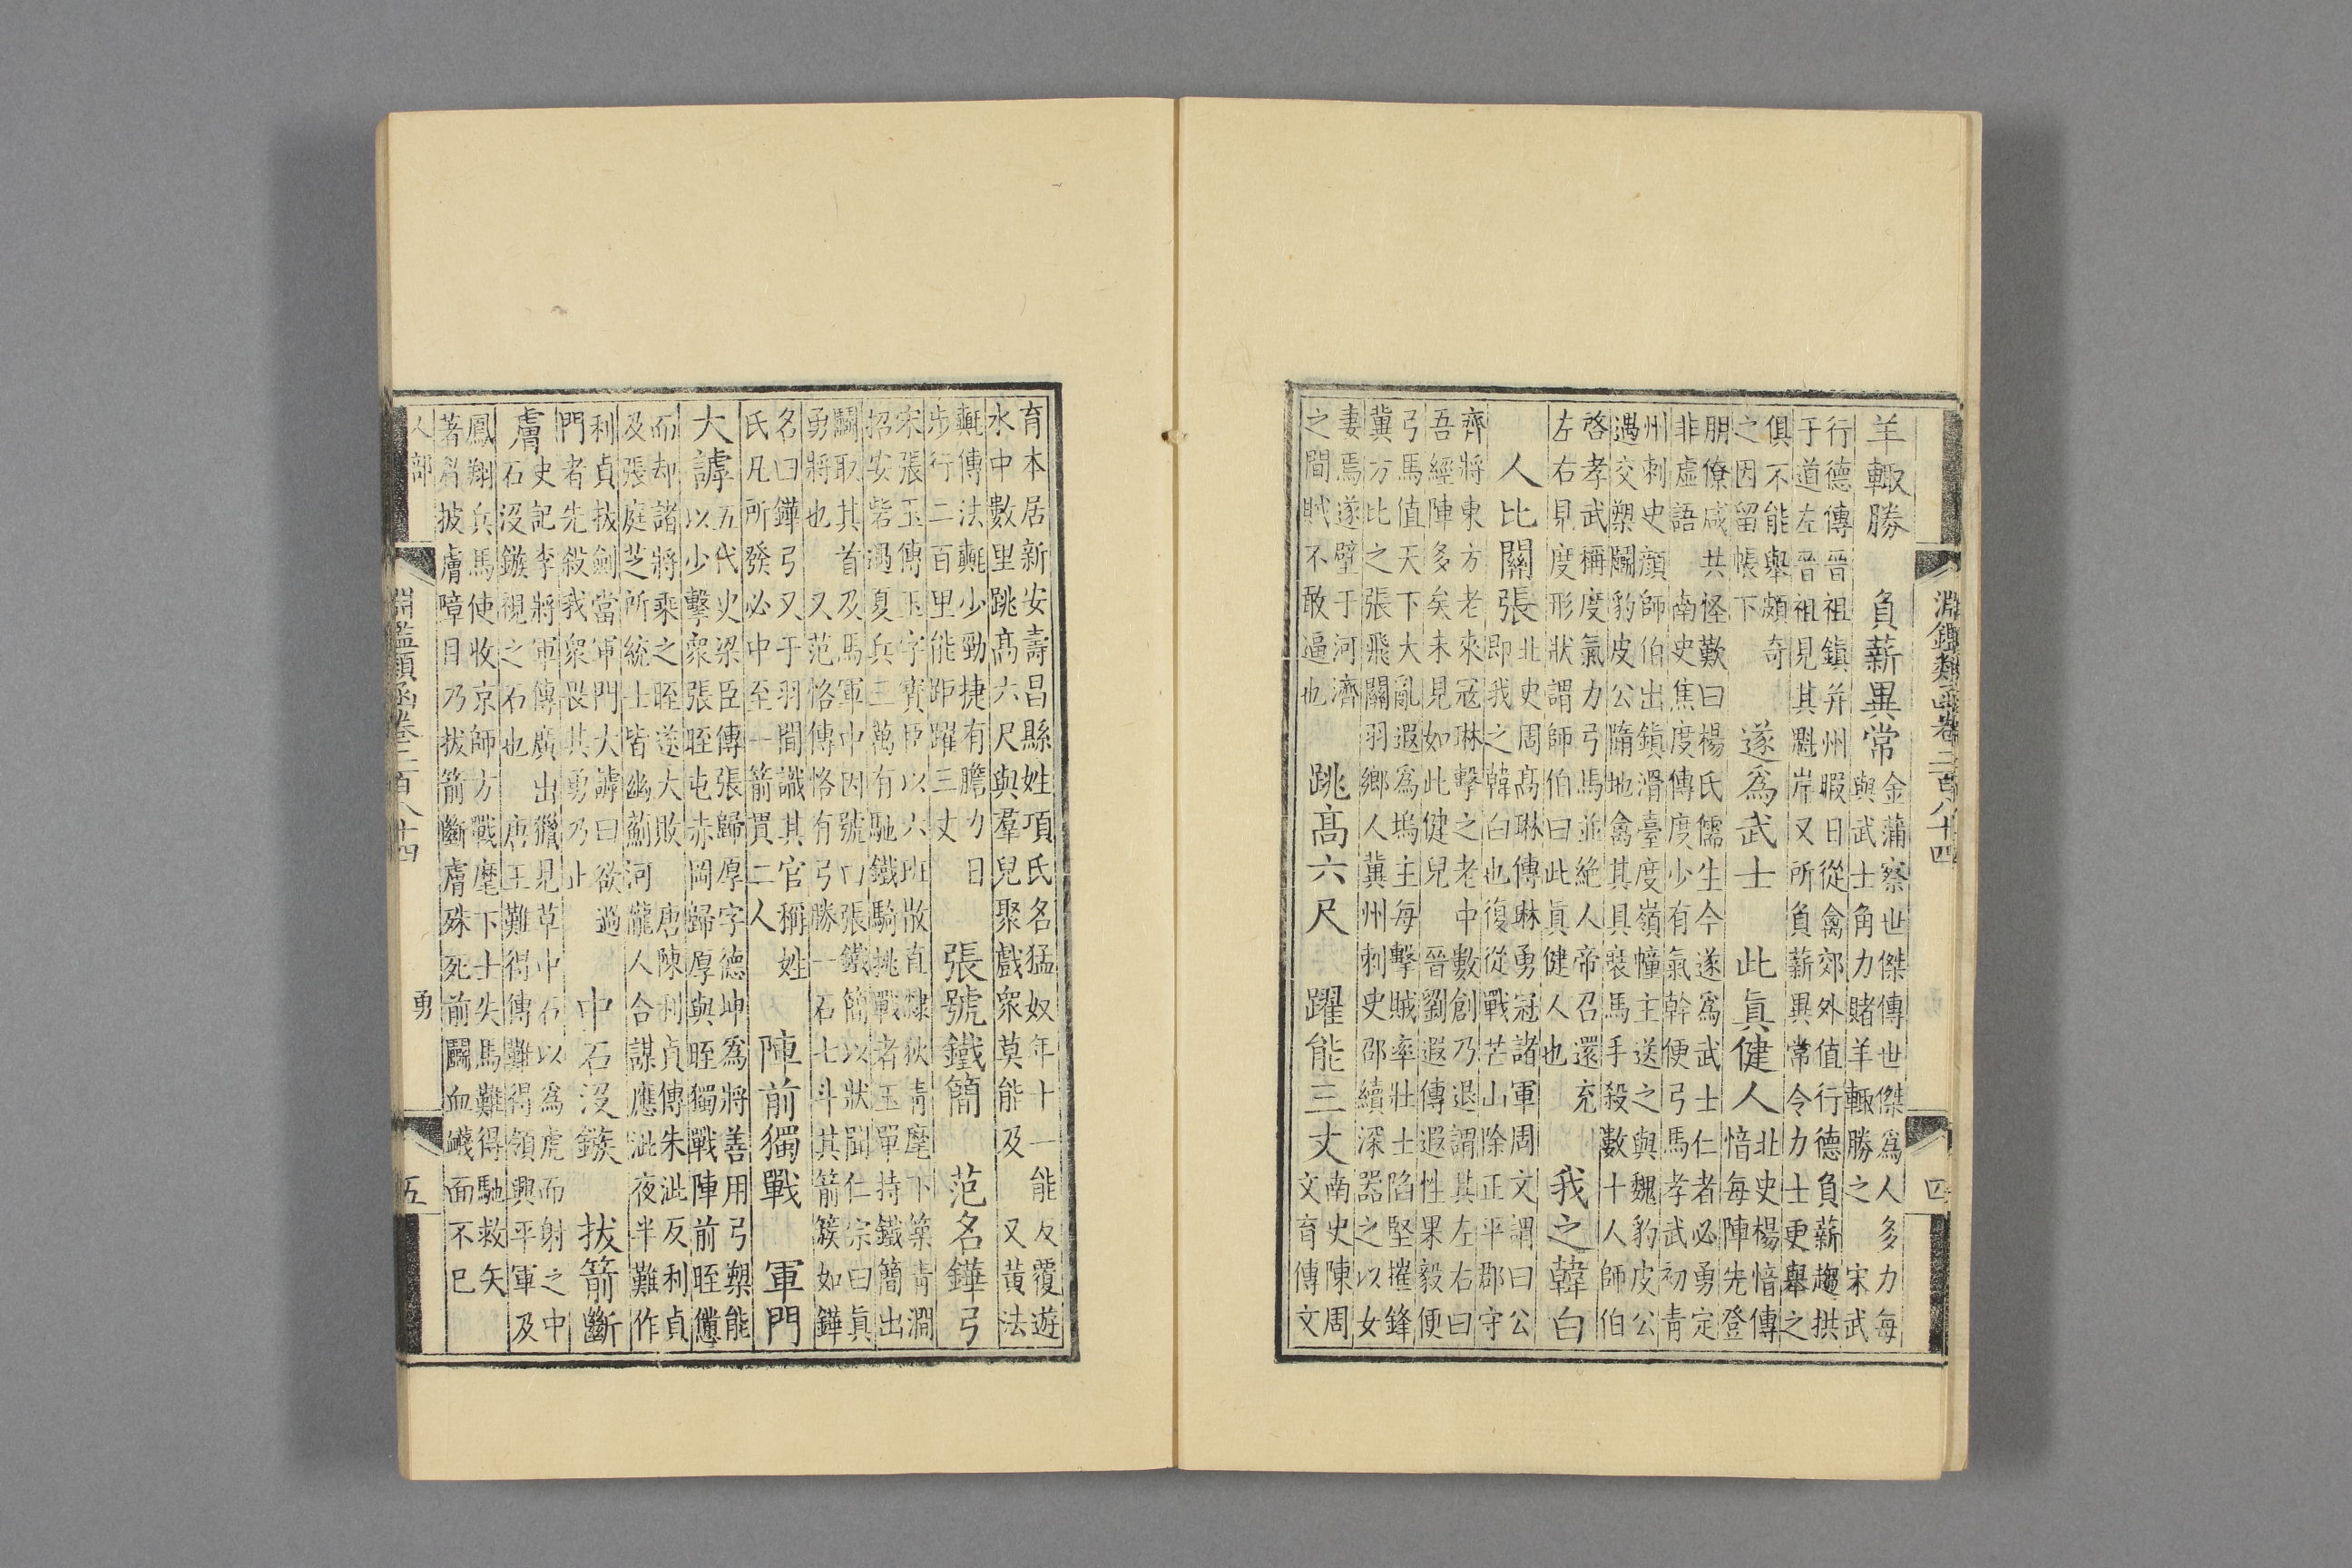 淵鑑類函卷二百八十四 四
羊輒勝 負薪異常
金蒲察世傑傳世傑爲人多力每
與武士角力賭羊輒勝之 宋武
行德傳晉祖鎮并州暇日從禽郊外值行德負薪趨拱
于道左晉祖見其魁岸又所負薪異常令力士更舉之
俱不能舉頗奇
之因留帳下
遂爲武士 此眞健人
北史楊愔傳
愔每陣先登
朋僚咸共怪歎曰楊氏儒生今遂爲武士仁者必勇定
非虛語 南史焦度傳度少有氣幹便弓馬孝武初青
州刺史顔師伯出鎮滑臺度嶺幢主送之與魏豹皮公
遇交槊鬬豹皮公隋地禽其具裝馬手殺數十人師伯
啓孝武稱度氣力弓馬並絕人帝召還充
左右見度形狀謂師伯曰此眞健人也
我之韓白
人比關張
北史周高琳傳琳勇冠諸軍周文謂曰公
即我之韓白也復從戰芒山除正平郡守
齊將東方老來冦琳擊之老中數創乃退謂其左右曰
吾經陣多矣未見如此健兒 晉劉遐傳遐性果毅便
弓馬值天下大亂遐爲塢主每擊賊率壯士陷堅摧鋒
冀方比之張飛關羽鄉人冀州刺史邵續深器之以女
妻焉遂壁于河濟
之間賊不敢逼也
跳高六尺 躍能三丈
南史陳周
文育傳文
育本居新安壽昌縣姓項氏名猛奴年十一能反覆遊
水中數里跳高六尺與羣兒聚戲衆莫能及 又黃法
𣰰傳法𣰰少勁捷有膽力日
步行二百里能距躍三丈
張號鐵簡 范名鏵弓
宋張玉傳玉字寶臣以六班散直隸狄青麾下築青澗
招安砦遇夏兵三萬有馳鐵騎挑戰者玉單持鐵簡出
鬬取其首及馬軍中因號曰張鐵簡以狀聞仁宗曰眞
勇將也 又范恪傳恪有弓勝一石七斗其箭簇如鏵
名曰鏵弓又于羽間識其官稱姓
氏凡所發必中至一箭貫二人
陣前獨戰 軍門
大謼
五代史梁臣傳張歸厚字德坤爲將善用弓槊能
以少擊衆張晊屯赤岡歸厚與晊獨戰陣前晊憊
而却諸將乘之晊遂大敗 唐陳利貞傳朱泚反利貞
及張庭芝所統士皆幽薊河隴人合謀應泚夜半難作
利貞拔劍當軍門大謼曰欲過
門者先殺我衆畏其勇乃止
中石没鏃 拔箭斷
膚
史記李將軍傳廣出獵見草中石以爲虎而射之中
石没鏃視之石也 唐王難得傳難得領興平軍及
鳳翔兵馬使收京師方戰麾下士失馬難得馳救矢
著眉披膚障目乃拔箭斷膚殊死前鬬血衊面不已
人部 淵鑑類函卷二百八十四 勇 五